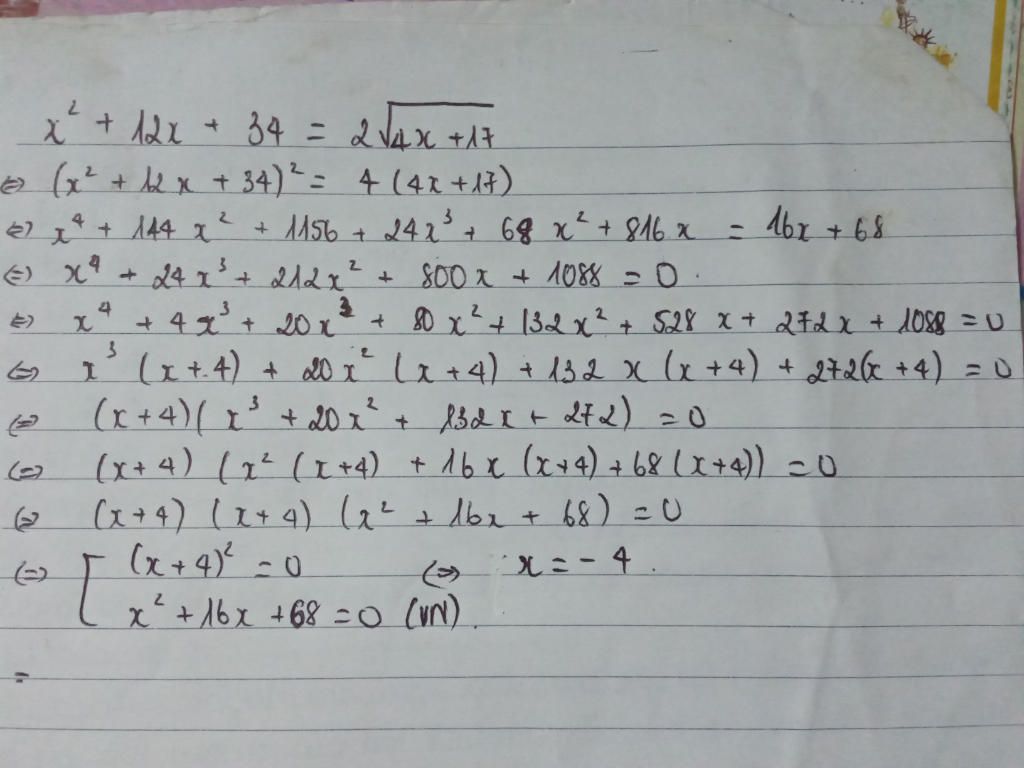 x² + 12x + 34 = 2√(4x+17)
⇔ (x² + 12x + 34)² = 4(4x+17)
⇔ x⁴ + 144x² + 1156 + 24x³ + 68x² + 816x = 16x + 68
⇔ x⁴ + 24x³ + 212x² + 800x + 1088 = 0.
⇔ x⁴ + 4x³ + 20x³ + 80x² + 132x² + 528x + 272x + 1088 = 0
⇔ x³(x+4) + 20x²(x+4) + 132x(x+4) + 272(x+4) = 0
⇔ (x+4)(x³ + 20x² + 132x + 272) = 0
⇔ (x+4)(x²(x+4) + 16x(x+4) + 68(x+4)) = 0
⇔ (x+4)(x+4)(x² + 16x + 68) = 0
⇔ [ (x+4)² = 0 ⇔ x = -4.
x² + 16x + 68 = 0 (VN).
=